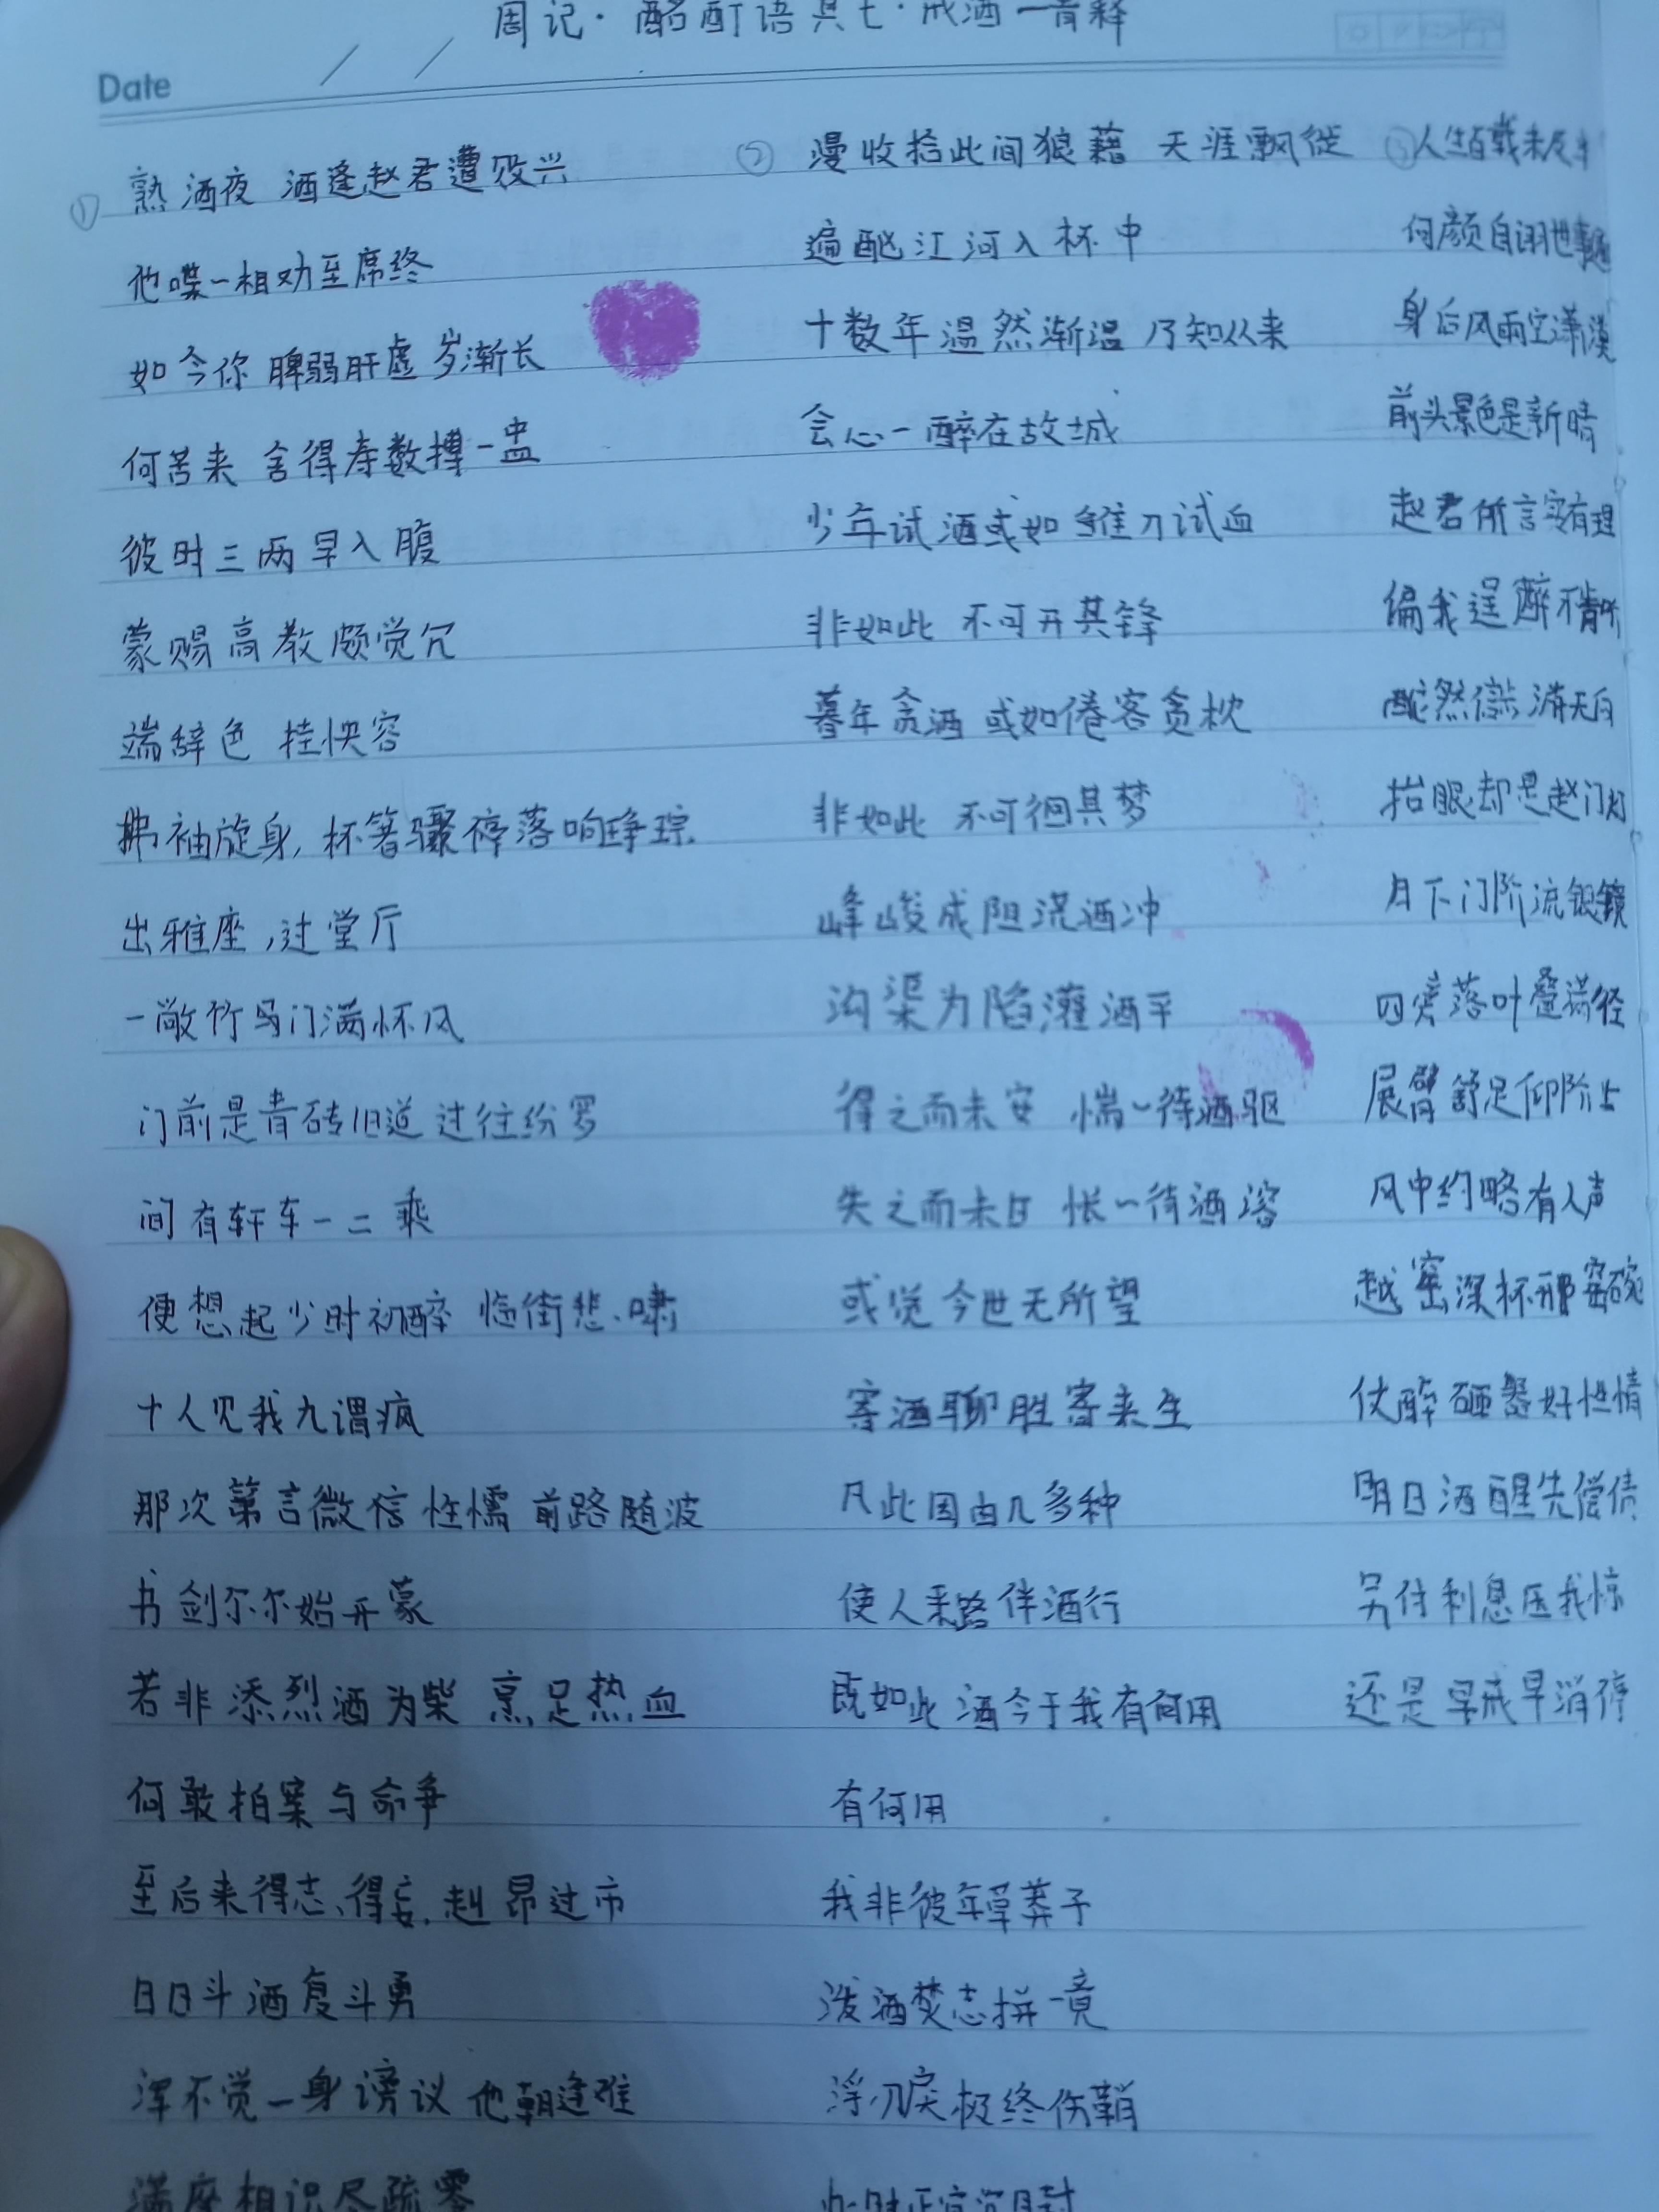 周记·酩酊语其七·戒酒一首释
Date / /
① 熟酒夜 酒逢赵君遭败兴
他喋一相劝至席终
如今你 脾弱肝虚 岁渐长
何苦来 舍得寿数搏一盅
彼时三两早入腹
蒙赐高教颇觉冗
端辞色 挂怏容
拂袖旋身, 杯箸骤停落响琤琮
出雅座,过堂厅
一敞竹马门满怀风
门前是青砖旧道 过往纷罗
间有轩车一二乘
便想起少时初醉 临街悲啸
十人见我九谓疯
那次第言微信性懦 前路随波
书剑尔尔始开蒙
若非添烈酒为柴 烹足热血
何敢拍案与命争
至后来得志、得妄, 赳昂过市
日日斗酒复斗勇
浑不觉一身谤议 他朝逢难
满座相识尽疏零
② 漫收拾此间狼藉 天涯飘徙
遍酏江河入杯中
十数年温然渐温 乃知从来
会心一醉在故城
少年试酒或如雏刀试血
非如此 不可开其锋
暮年贪酒 或如倦客贪枕
非如此 不可徊其梦
峰峻成阻浇酒冲
沟渠为陷灌酒平
得之而未安 惴一待酒驱
失之而未甘 怅一待酒溶
或觉今世无所望
寄酒聊胜寄来生
凡此因由几多种
使人来路伴酒行
既如此 酒今于我有何用
有何用
我非彼年草莽子
泼酒焚志拼一竟
浮刃戾极终伤鞘
③ 人生百载未及半
何颜自诩世事通
身后风雨空潇漠
前头景色是新晴
赵君所言实有理
偏我逞醉不肯听
酡然 满天白
抬眼却是赵门灯
月下门阶流银镜
四旁落叶叠满径
展臂舒足仰阶上
风中约略有人声
越窑深杯邢窑碗
仗醉砸器好性情
明日酒醒先偿债
另付利息压我惊
还是早戒早消停